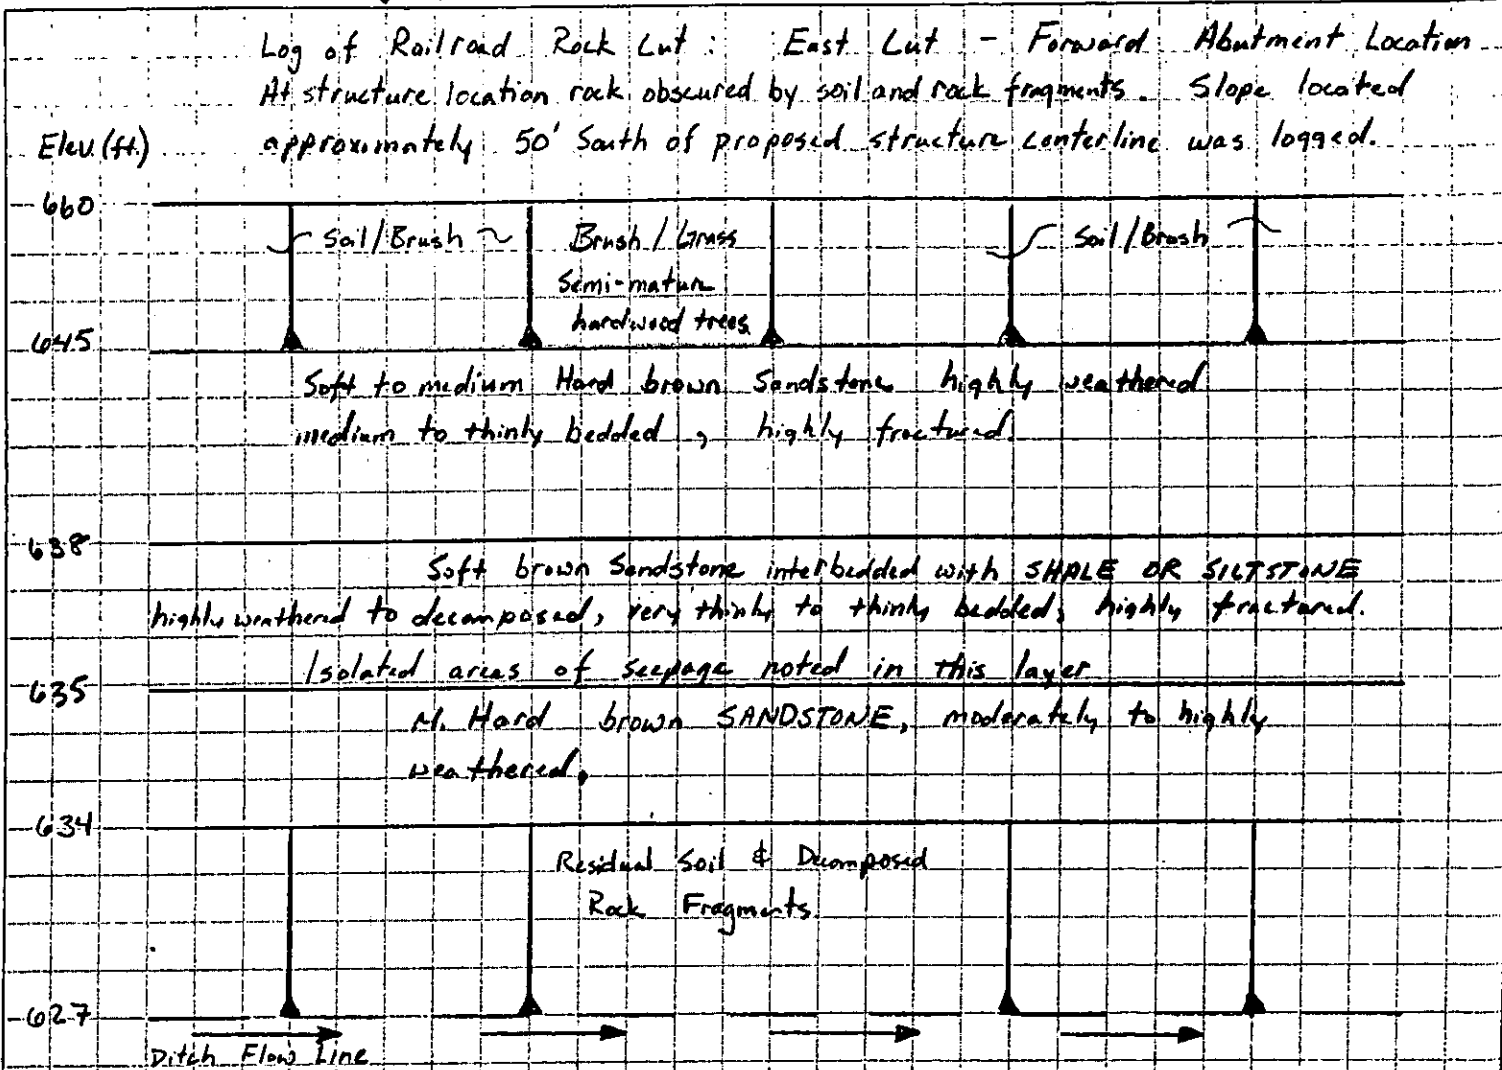 Log of Railroad Rock Cut: East Cut - Forward Abutment Location
At structure location rock obscured by soil and rock fragments. Slope located
approximately 50' South of proposed structure centerline was logged.
Elev.(ft.)
660
Soil/Brush
Brush/Grass
Semi-mature
hardwood trees
Soil/Brush
645
Soft to medium Hard brown Sandstone highly weathered
medium to thinly bedded, highly fractured.
638
Soft brown Sandstone interbedded with SHALE OR SILTSTONE
highly weathered to decomposed, very thinly to thinly bedded, highly fractured.
Isolated areas of seepage noted in this layer
635
M. Hard brown SANDSTONE, moderately to highly
weathered,
634
Residual Soil & Decomposed
Rock Fragments
627
Ditch Flow Line